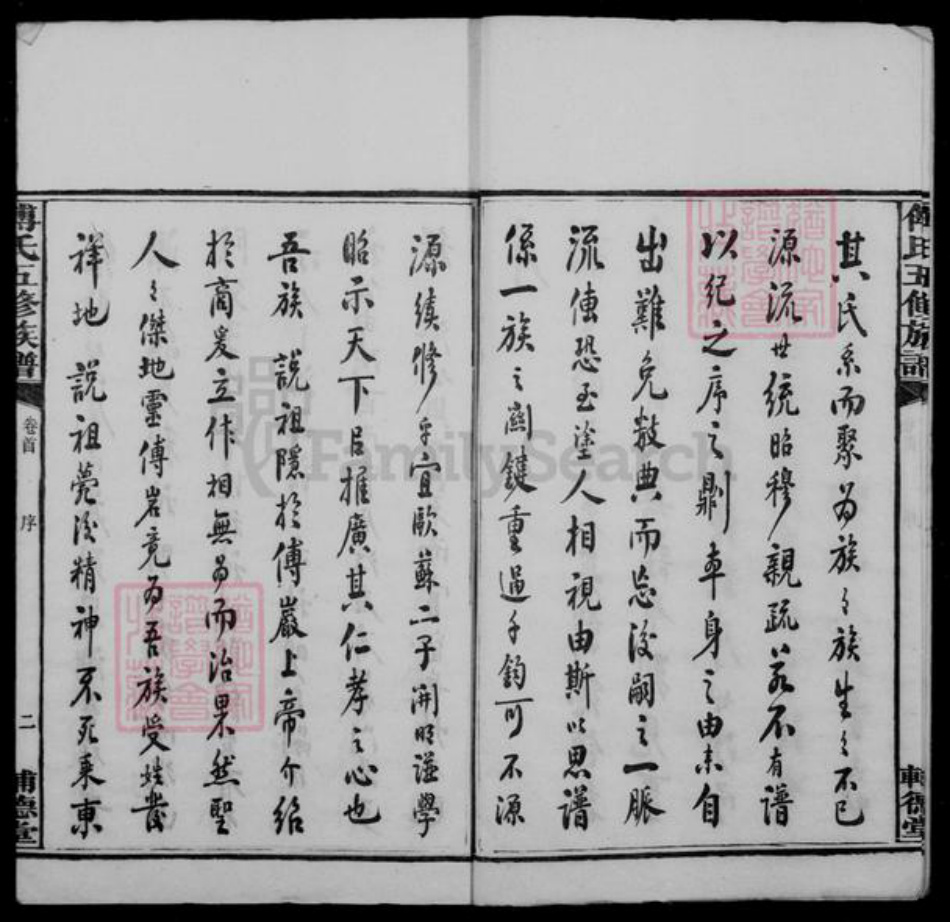 其氏系而聚为族々族生々不已
源流世统昭穆親疏若不有譜
以紀之序之鼎本身之由来自
出難免数典而忘後嗣之一脈
流傳恐至塗人相視由斯以思譜
係一族之関鍵重過千鈞可不源
源续修乎宜歐蘇二子開明谱學
昭示天下臣推廣其仁孝之心也
吾族 説祖隱於傅巖上帝介紹
於商爰立作相無為而治果然聖
人々傑地靈傅岩竟为吾族受姓發
祥地 説祖薨後精神不死乘東
傅氏五修族譜
卷首
序
二
輔德堂
FamilySearch